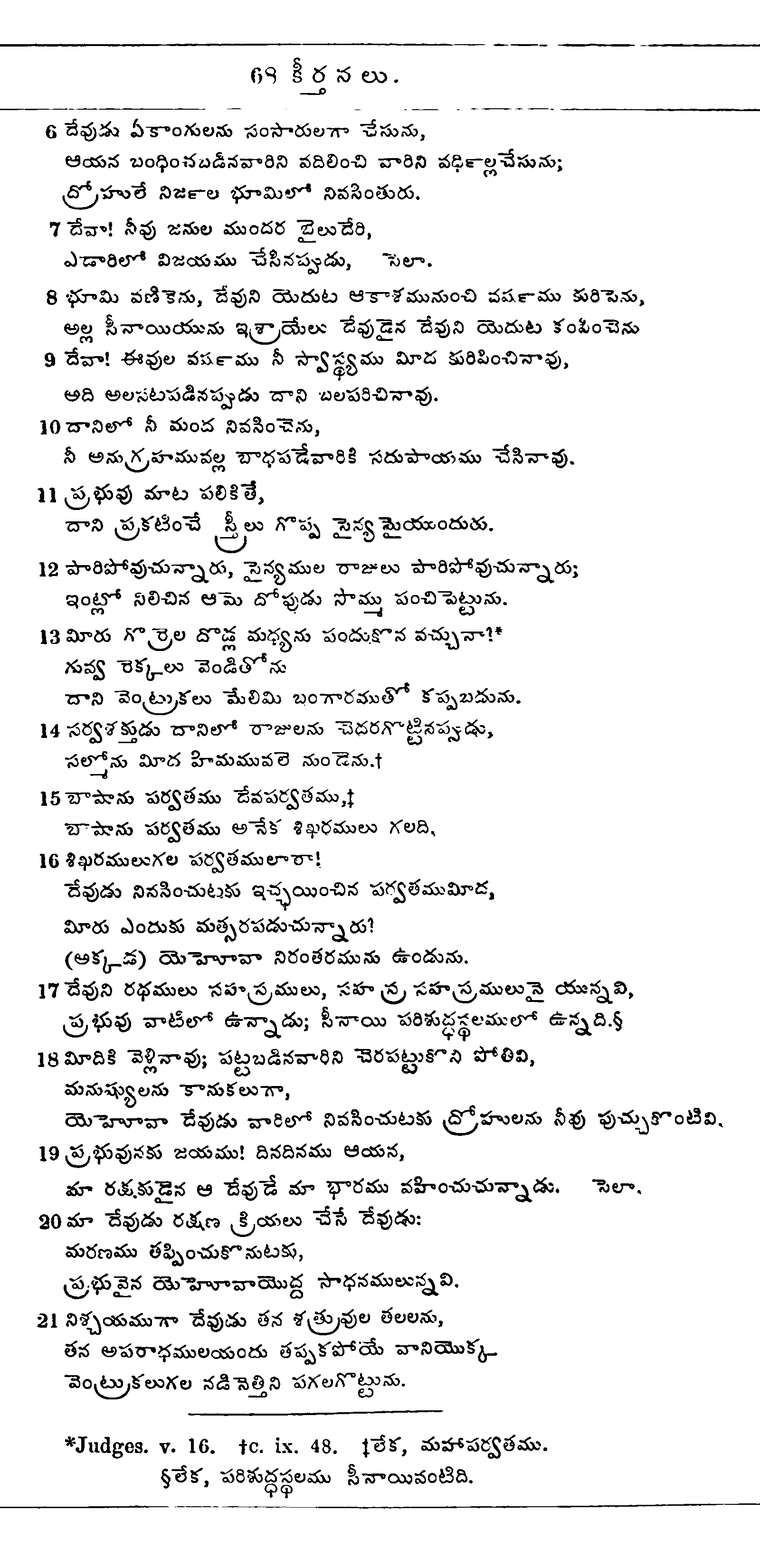 68 కీర్తనలు.
6 దేవుడు ఏకాంగులను సంసారులగా చేసును,
ఆయన బంధించబడినవారిని వదిలించి వారిని వర్ధిల్లచేసును;
ద్రోహులే నిర్జల భూమిలో నివసింతురు.
7 దేవా! నీవు జనుల ముందర బైలుదేరి,
ఎడారిలో విజయము చేసినప్పుడు, సెలా.
8 భూమి వణికెను, దేవుని యెదుట ఆకాశమునుంచి వర్షము కురిసెను,
అల్ల సీనాయియును ఇశ్రాయేలు దేవుడైన దేవుని యెదుట కంపించెను
9 దేవా! ఈవుల వర్షము నీ స్వాస్థ్యము మీద కురిపించినావు,
అది అలసటపడినప్పుడు దాని బలపరిచినావు.
10 దానిలో నీ మంద నివసించెను,
నీ అనుగ్రహమువల్ల బాధపడేవారికి సదుపాయము చేసినావు.
11 ప్రభువు మాట పలికితే,
దాని ప్రకటించే స్త్రీలు గొప్ప సైన్యమైయుందురు.
12 పారిపోవుచున్నారు, సైన్యముల రాజులు పారిపోవుచున్నారు;
ఇంట్లో నిలిచిన ఆమె దోపుడు సొమ్ము పంచిపెట్టును.
13 మీరు గొర్రెల దొడ్ల మధ్యను పండుకొన వచ్చునా?*
గువ్వ రెక్కలు వెండితోను
దాని వెంట్రుకలు మేలిమి బంగారముతో కప్పబడును.
14 సర్వశక్తుడు దానిలో రాజులను చెదరగొట్టినప్పుడు,
సల్మోను మీద హిమమువలె నుండెను.†
15 బాషాను పర్వతము దేవపర్వతము,‡
బాషాను పర్వతము అనేక శిఖరములు గలది.
16 శిఖరములుగల పర్వతములారా!
దేవుడు నివసించుటకు ఇచ్ఛయించిన పర్వతముమీద,
మీరు ఎందుకు మత్సరపడుచున్నారు?
(అక్కడ) యెహోవా నిరంతరమును ఉండును.
17 దేవుని రథములు సహస్రములు, సహస్ర సహస్రములునై యున్నవి,
ప్రభువు వాటిలో ఉన్నాడు; సీనాయి పరిశుద్ధస్థలములో ఉన్నది.§
18 మీదికి వెళ్లినావు; పట్టబడినవారిని చెరపట్టుకొని పోతివి,
మనుష్యులను కానుకలుగా,
యెహోవా దేవుడు వారిలో నివసించుటకు ద్రోహులను నీవు పుచ్చుకొంటివి.
19 ప్రభువునకు జయము! దినదినము ఆయన,
మా రక్షకుడైన ఆ దేవుడే మా భారము వహించుచున్నాడు. సెలా.
20 మా దేవుడు రక్షణ క్రియలు చేసే దేవుడు:
మరణము తప్పించుకొనుటకు,
ప్రభువైన యెహోవాయొద్ద సాధనములున్నవి.
21 నిశ్చయముగా దేవుడు తన శత్రువుల తలలను,
తన అపరాధములయందు తప్పకపోయే వానియొక్క
వెంట్రుకలుగల నడినెత్తిని పగలగొట్టును.
*Judges. v. 16. †c. ix. 48. ‡లేక, మహాపర్వతము.
§లేక, పరిశుద్ధస్థలము సీనాయివంటిది.